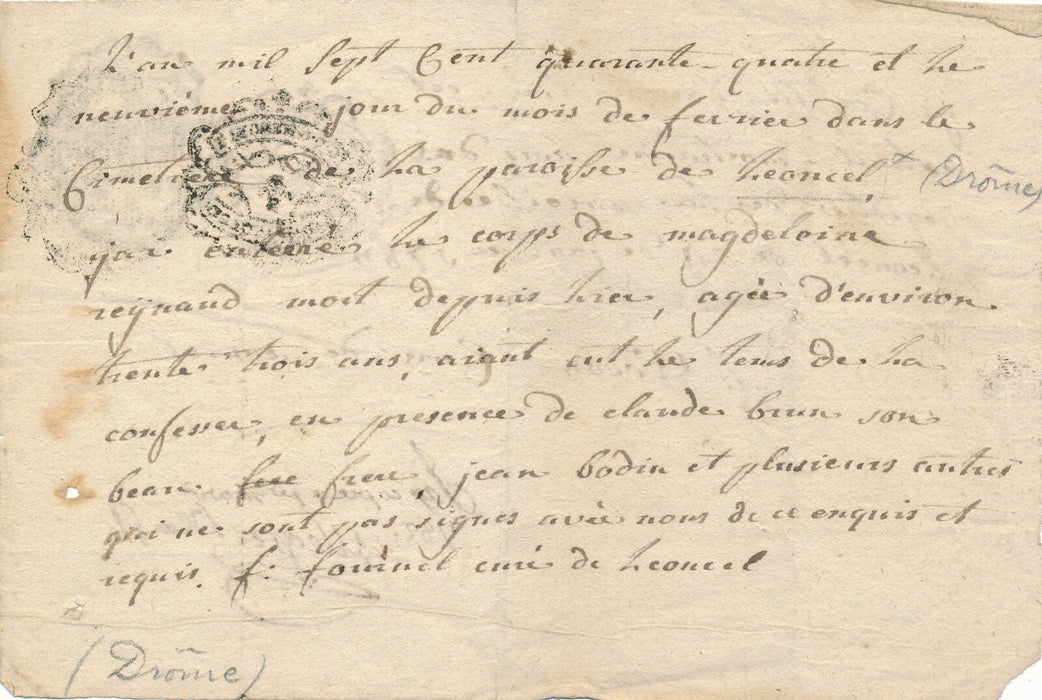 L'an mil Sept Cent quarante-quatre et le
neuviéme jour du mois de fevrier dans le
Cimetiere de La paroisse de Leoncel + (Drôme)
j'ai enterré le corps de magdeleine
reynaud mort depuis hier, agée d'environ
trente trois ans, aiant eut le tems de la
confesser, en presence de claude brun son
beau fere frere, jean bodin et plusieurs autres
qui ne sont pas signes avec nous de ce enquis et
requis. f: fournel curé de Leoncel
(Drôme)